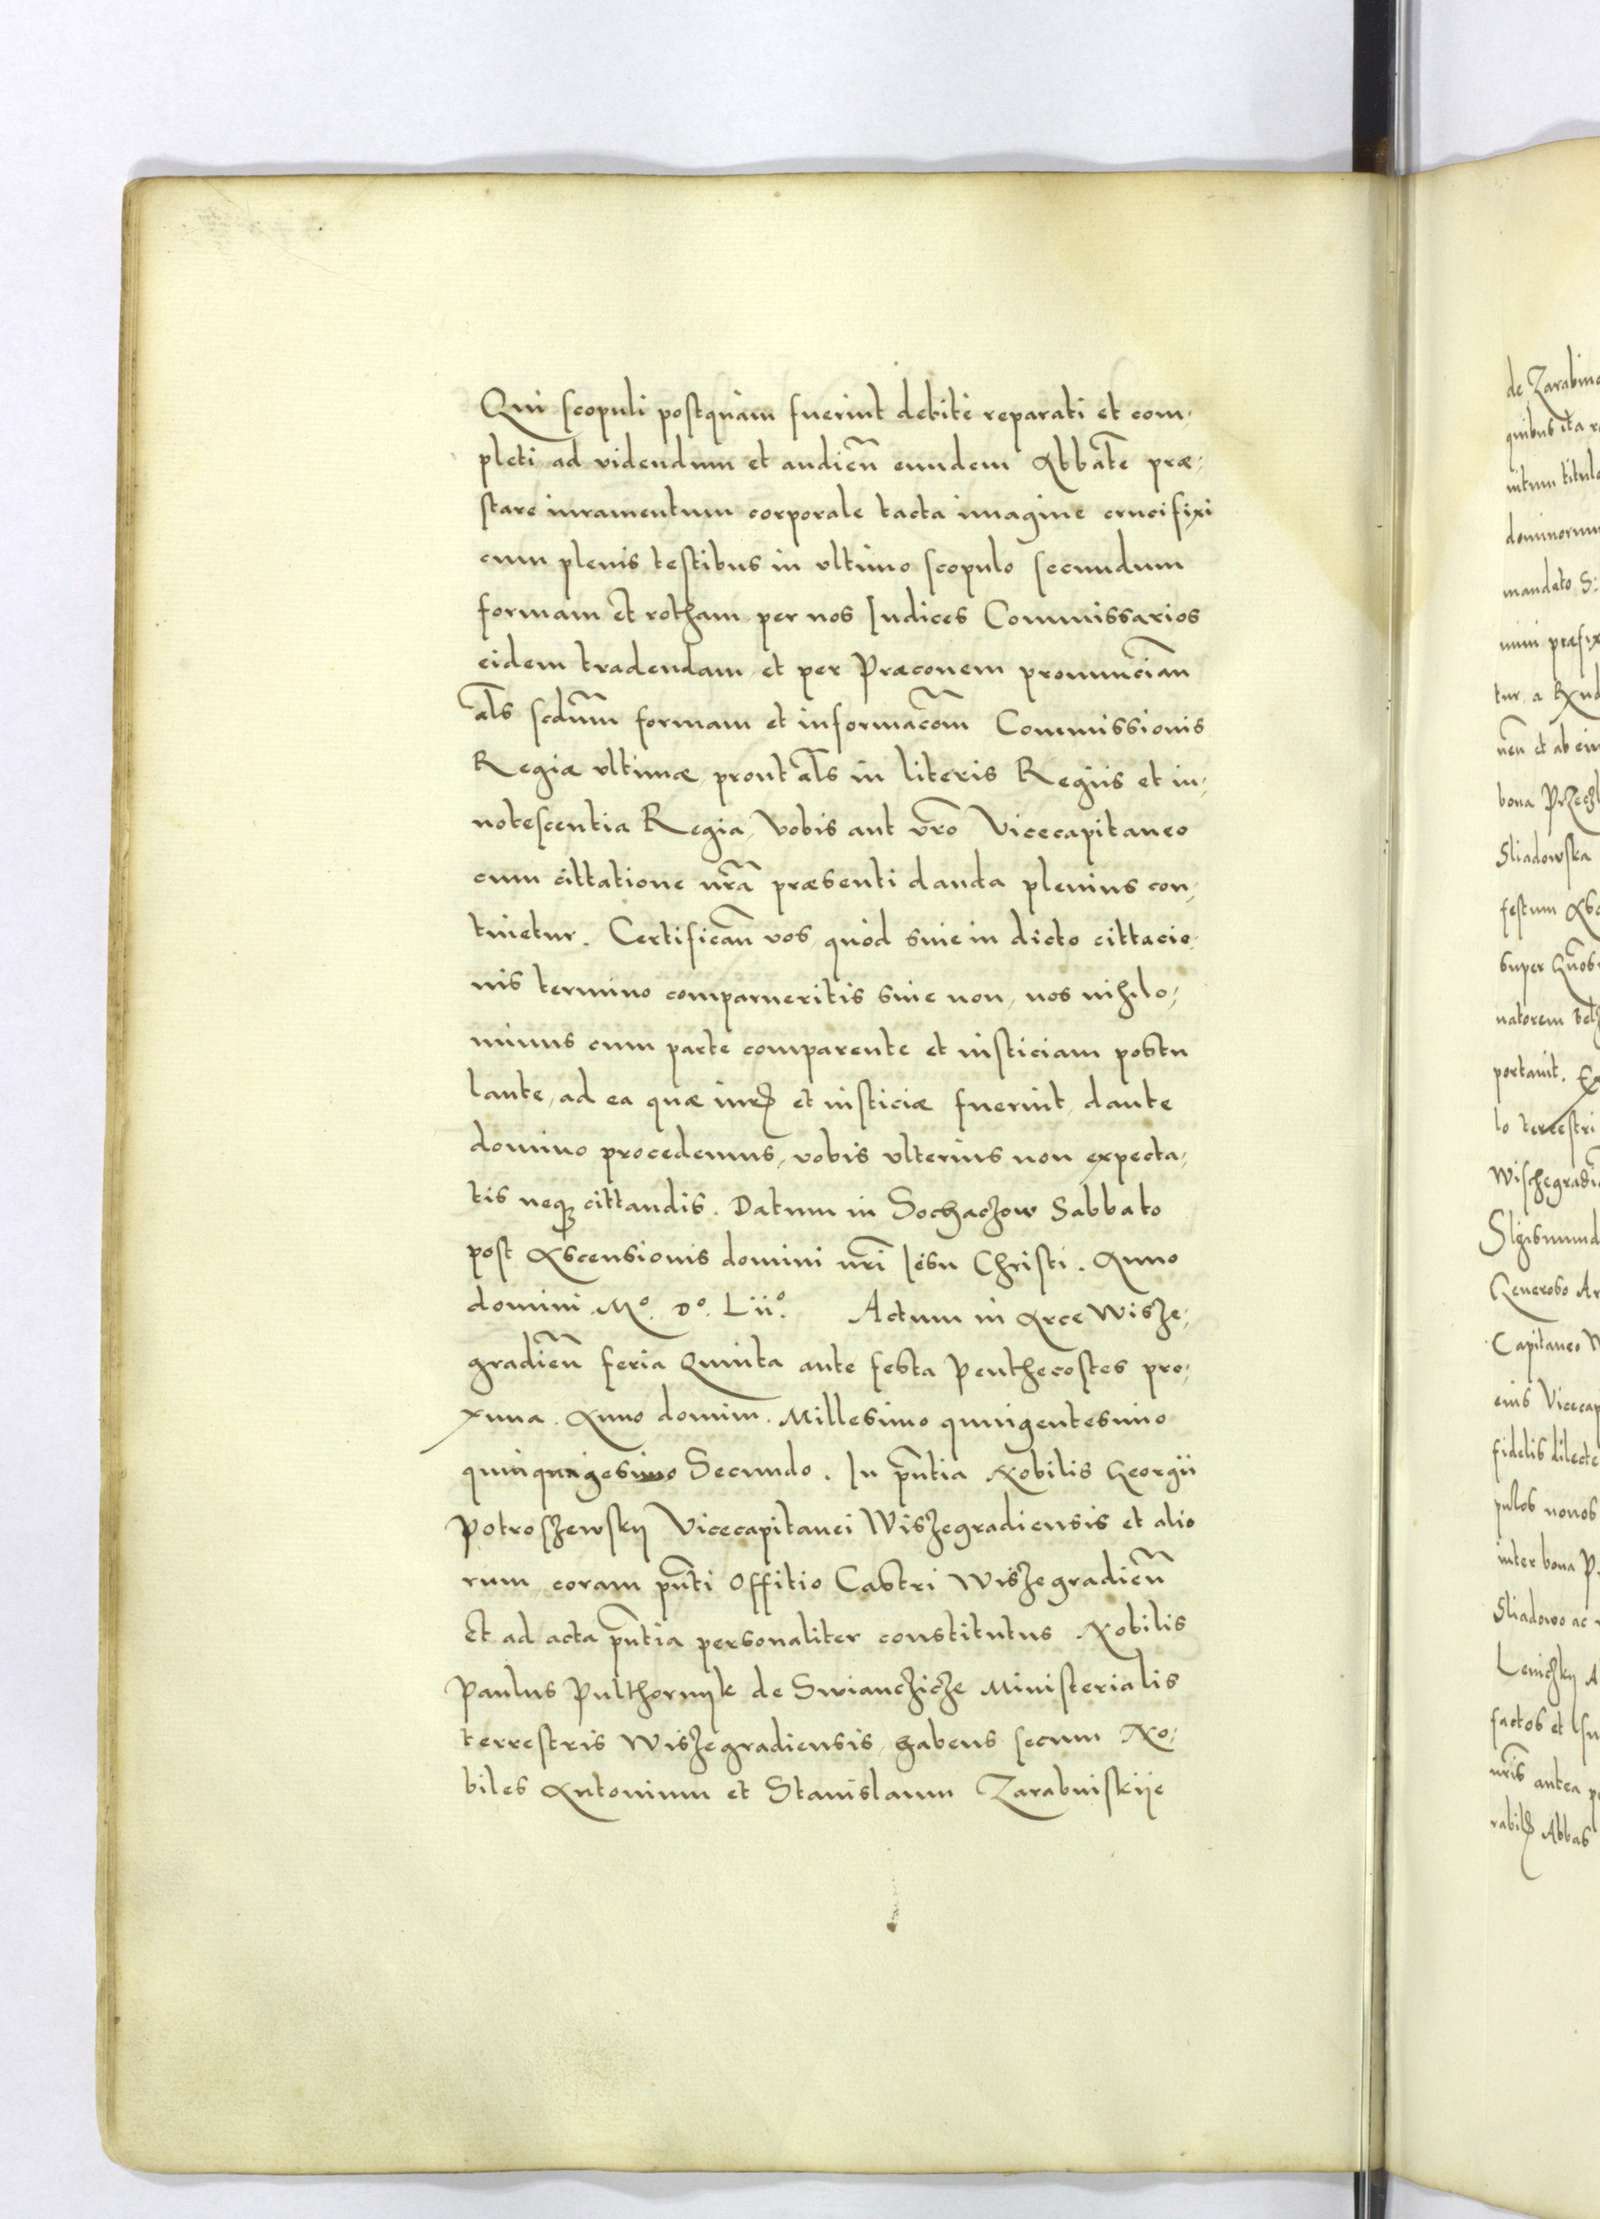 Qui scopuli postquàm fuerint debitè reparati et com,
pleti, ad videndum et audieñ eundem Abbatẽ præ,
stare iuramentum corporale tacta imagine crucifixi
cum plenis testibus in ultimo scopulo secundum
formam et rotham per nos Iudices Commissarios
eidem tradendam, et per Præconem pronunciañ
als̃ scdũm formam et informacõm Commissionis
Regiæ ultimæ, prout als̃ in literis Regiis et in,
notescentia Regia, Vobis aut vrõ Vicecapitaneo
cum cittatione nr̃a præsenti danda plenius con,
tinetur. Certificañ vos, quòd siue in dicto cittacio,
nis termino comparueritis siue non, nos nihilo,
minus cum parte comparente et iusticiam postu
lante, ad ea quæ iurꝭ et iusticiæ fuerint, dante
domino procedemus, vobis ulterius non expecta,
tis neqꝫ cittandis. Datum in Sochaczow Sabbato
post Ascensionis domini nr̃i Iesu Christi. Anno
domini Mº. Dº. Liiº. Actum in Arce Wisze,
gradieñ feria Quinta ante festa Penthecostes pro,
xima. Anno domini. Millesimo quingentesimo
quinquagesimo Secundo. In pñtia Nobilis Georgii
Potroszewskij Vicecapitanei Wiszegradiensis et alio
rum, coram pñti Offitio Castri Wiszegradieñ
Et ad acta pñtia personaliter constitutus Nobilis
Paulus Pulthornyk de Swianczicze Ministerialis
terrestris Wiszegradiensis, habens secum No,
biles Antonium et Stanislaum Zarabniskije
de
quibus ita
nitum
mandato S:
tur, a
bona
Sliadowska
festum
super
natorem
portauit.
lo terrestri
Generoso
Capitaneo
eius
pulos nouos
inter bona
Sliadowo ac
factos et
antea
Abbas